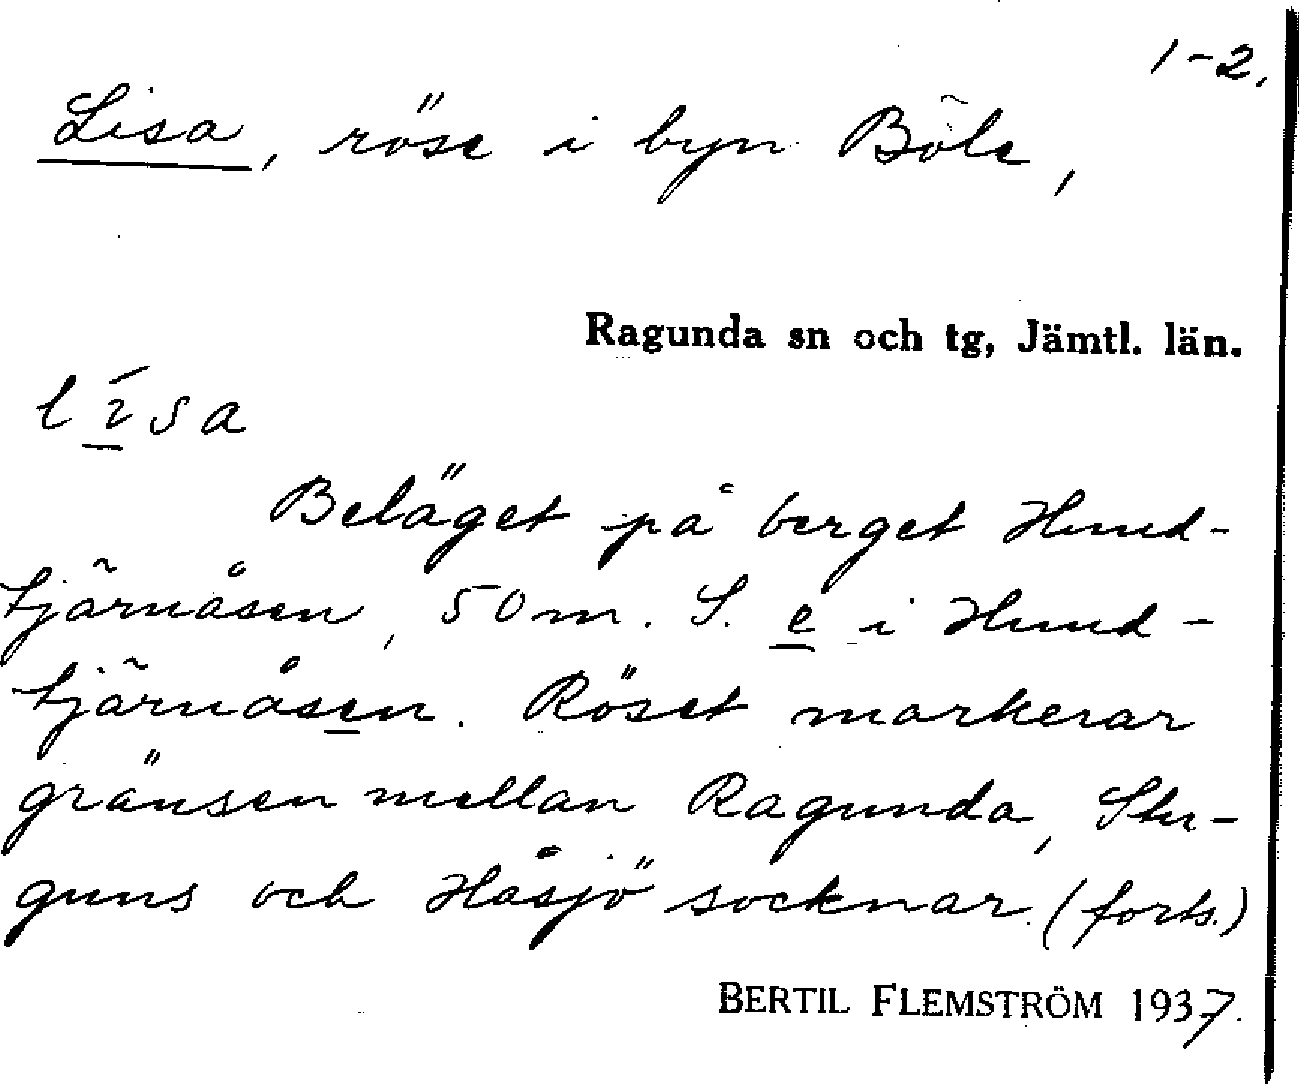 1-2.
Lisa, röse i byn Böle,
Ragunda sn och tg, Jämtl. län.
lísa
Beläget på berget Hund-
tjärnåsen, 50 m. S. e i Hund-
tjärnåsen. Röset markerar
gränsen mellan Ragunda, Stu-
guns och Håsjö socknar. (forts.)
BERTIL FLEMSTRÖM 1937.